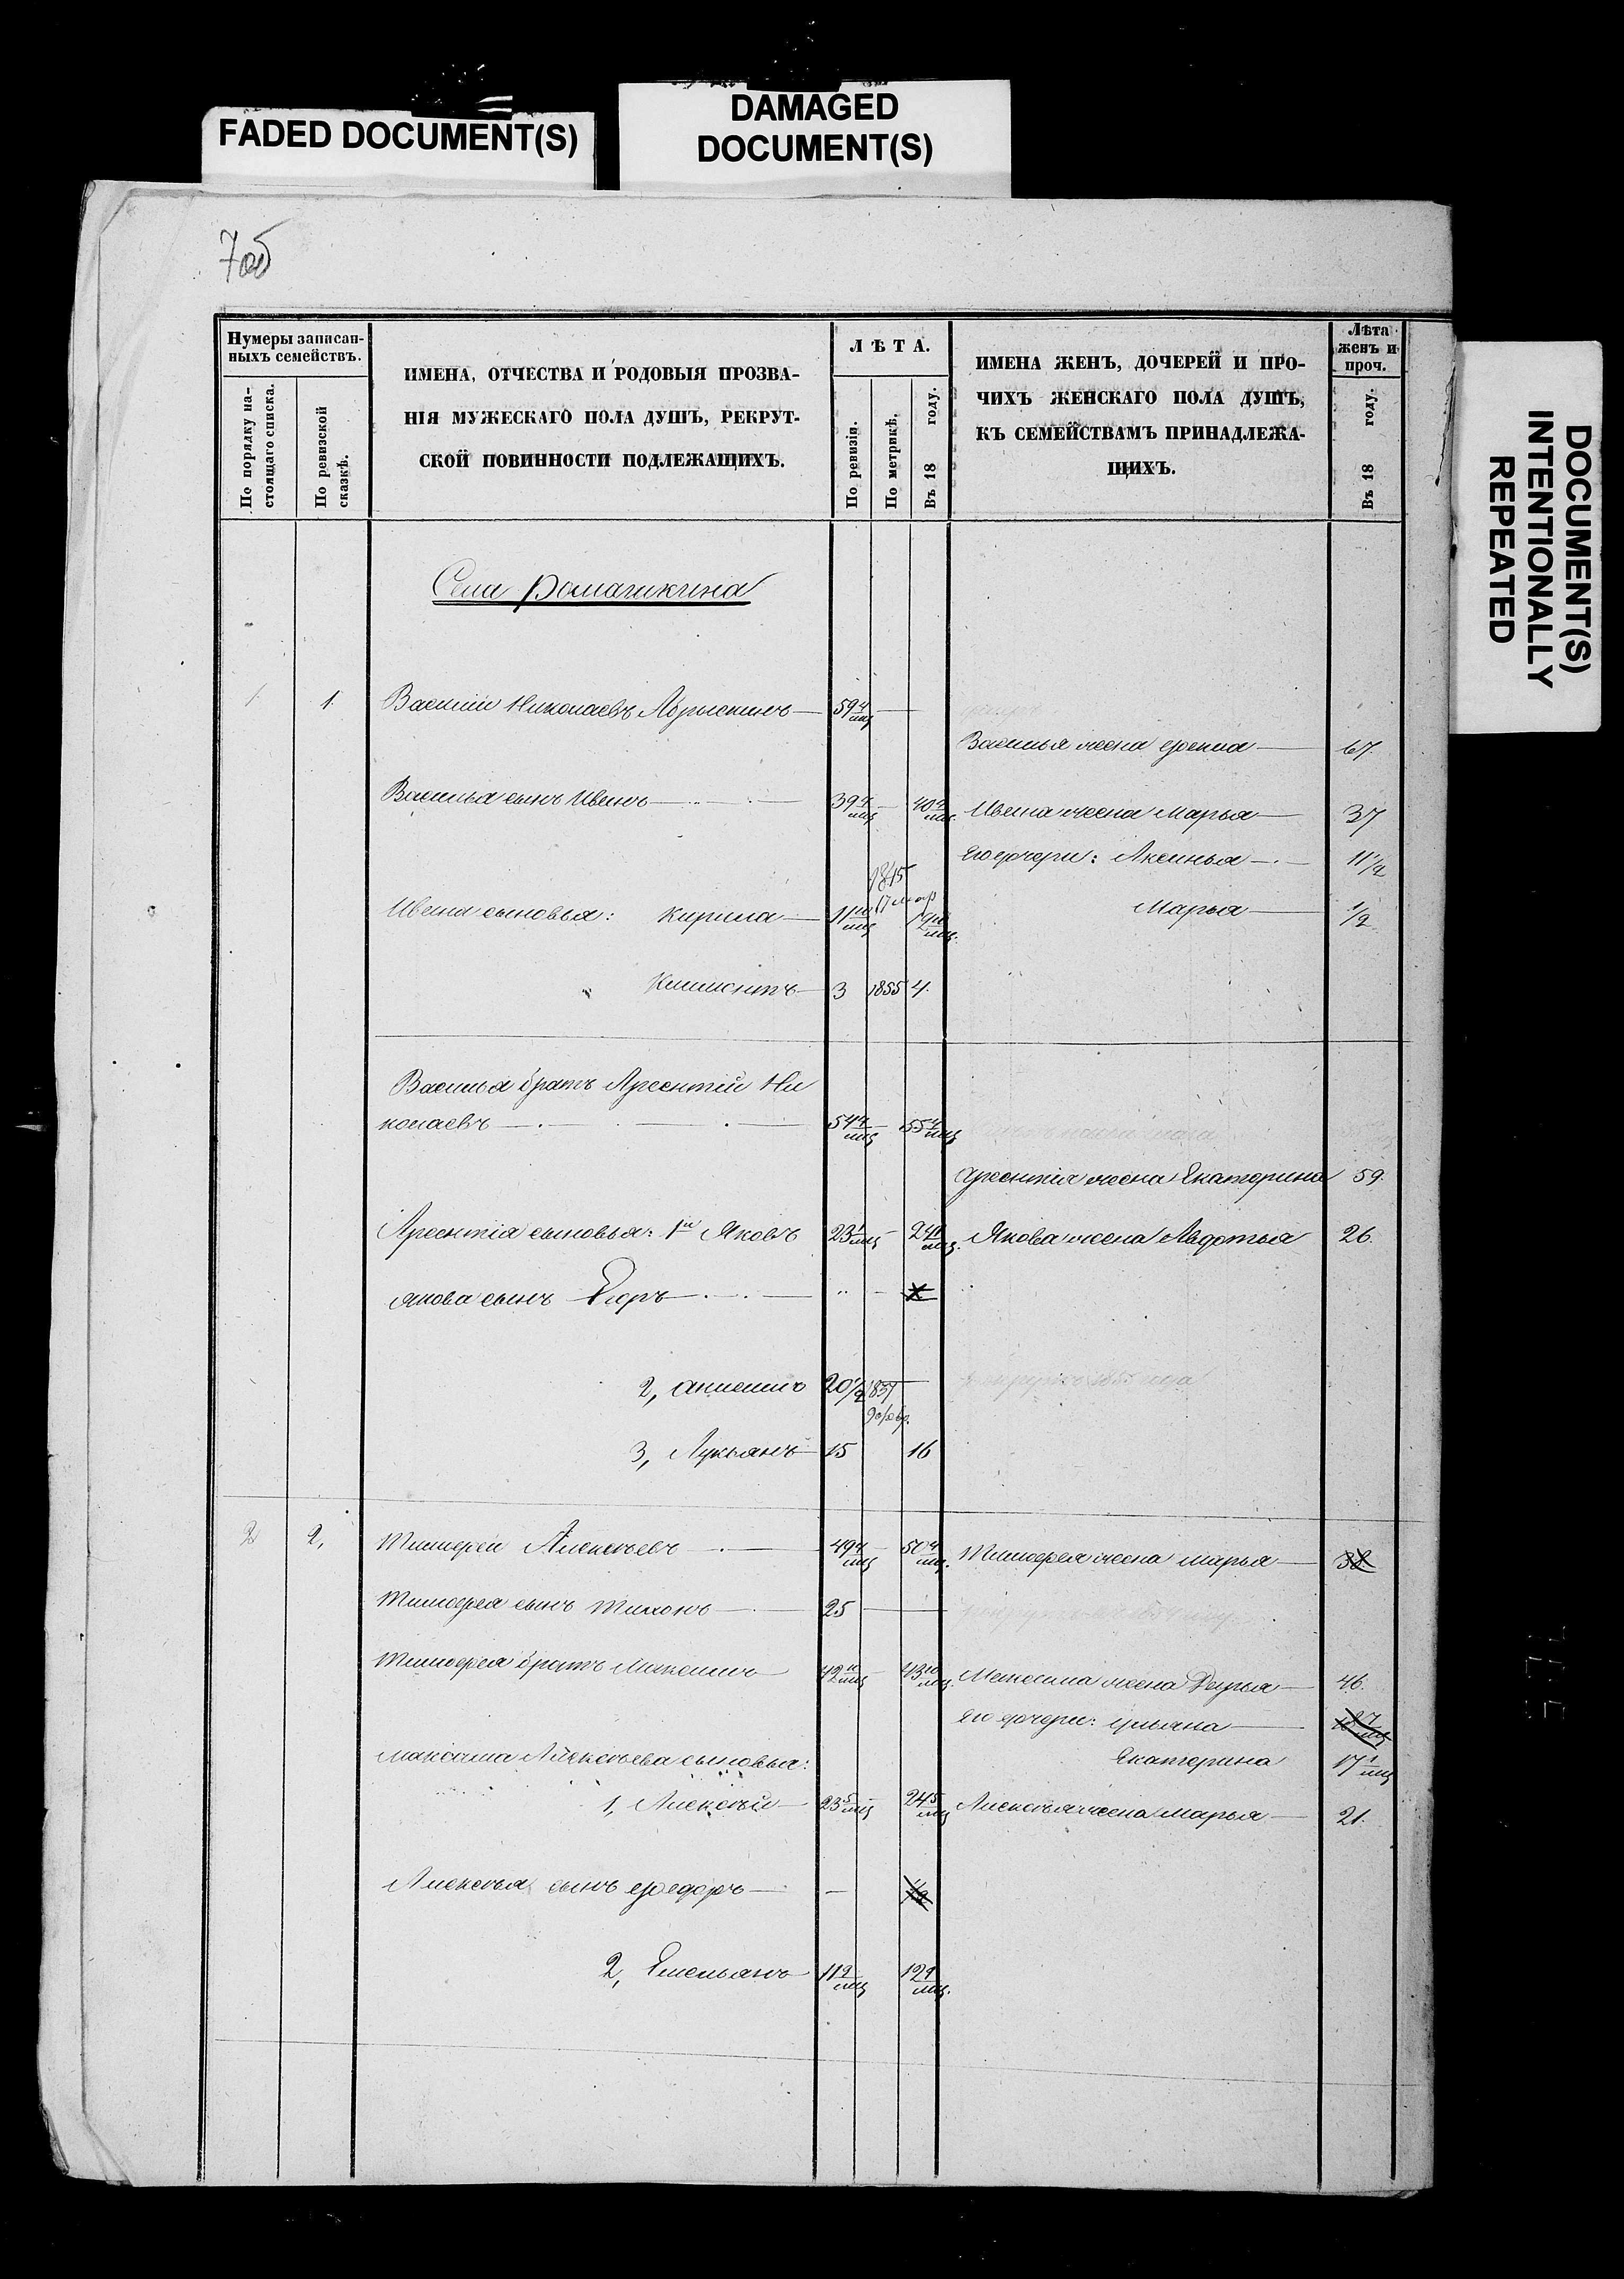 FADED DOCUMENT(S)
DAMAGED
DOCUMENT(S)
DOCUMENT(S)
INTENTIONALLY
REPEATED
7об
Нумеры записан-
ныхъ семействъ.
По порядку на-
стоящаго списка.
По ревизской
сказкѣ.
ИМЕНА, ОТЧЕСТВА И РОДОВЫЯ ПРОЗВА-
НІЯ МУЖЕСКАГО ПОЛА ДУШЪ, РЕКРУТ-
СКОЙ ПОВИННОСТИ ПОДЛЕЖАЩИХЪ.
ЛѢТА.
По ревизіи.
По метрикѣ.
Въ 18 году.
ИМЕНА ЖЕНЪ, ДОЧЕРЕЙ И ПРО-
ЧИХЪ ЖЕНСКАГО ПОЛА ДУШЪ,
КЪ СЕМЕЙСТВАМЪ ПРИНАДЛЕЖА-
ЩИХЪ.
Лѣта
женъ и
проч.
Въ 18 году.
Села Ромашкина
1 1 Василій Николаевъ Абрыскинъ — 59 4/мц —
Василья жена — 67.
Василья сынъ Иванъ — 39 4/мц — 40 4/мц. Ивана жена Марья — 37
Его дочери: Аксинья — 11 1/2
1845
17
Ивана сыновья: Кирила — 11 10/мц 12 10/мц. Марья — 1/2
Климентъ — 3 1855 4.
Василья братъ Арсентій Ни
колаевъ — 54 4/мц — 55 4/мц
Арсентія жена Екатерина 59.
Арсентія сыновья: 1й Яковъ 23 1/мц — 24 1/мц. Якова жена Авдотья 26.
Якова сынъ Егоръ —
2, Анисимъ 20 1/2 1837
3, Лукьянъ 15 16
2 2, Тимофей Алексѣевъ — 49 4/мц — 50 4/мц. Тимофея жена Марья — 38
Тимофея сынъ Тихонъ — 25 —
Тимофея братъ Максимъ 42 10/мц — 43 10/мц. Максима жена Дарья — 46.
Его дочери: Ульяна —
Максима Алексѣева сыновья: Екатерина 17 1/мц
1, Алексѣй — 23 5/мц 24 5/мц Алексѣя жена Марья — 21.
Алексѣя сынъ Федоръ — —
2, Емельянъ 11 9/мц 12 9/мц.